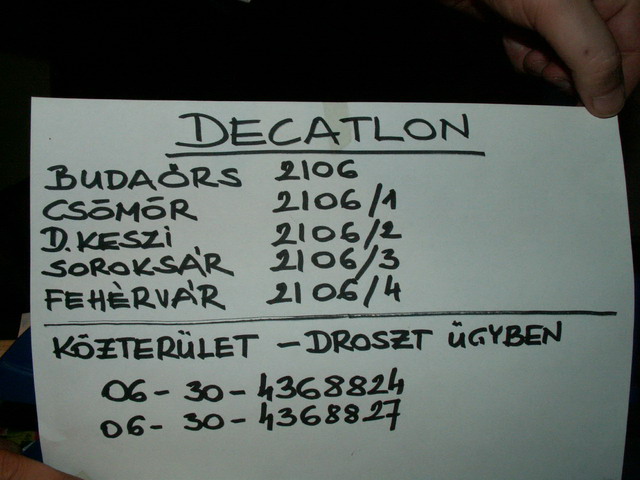 DECATLON
BUDAÖRS 2106
CSÖMÖR 2106/1
D.KESZi 2106/2
SOROKSÁR 2106/3
FEHÉRVÁR 2106/4
KÖZTERÜLET - DROSZT ÜGYBEN
06-30-4368824
06-30-4368827